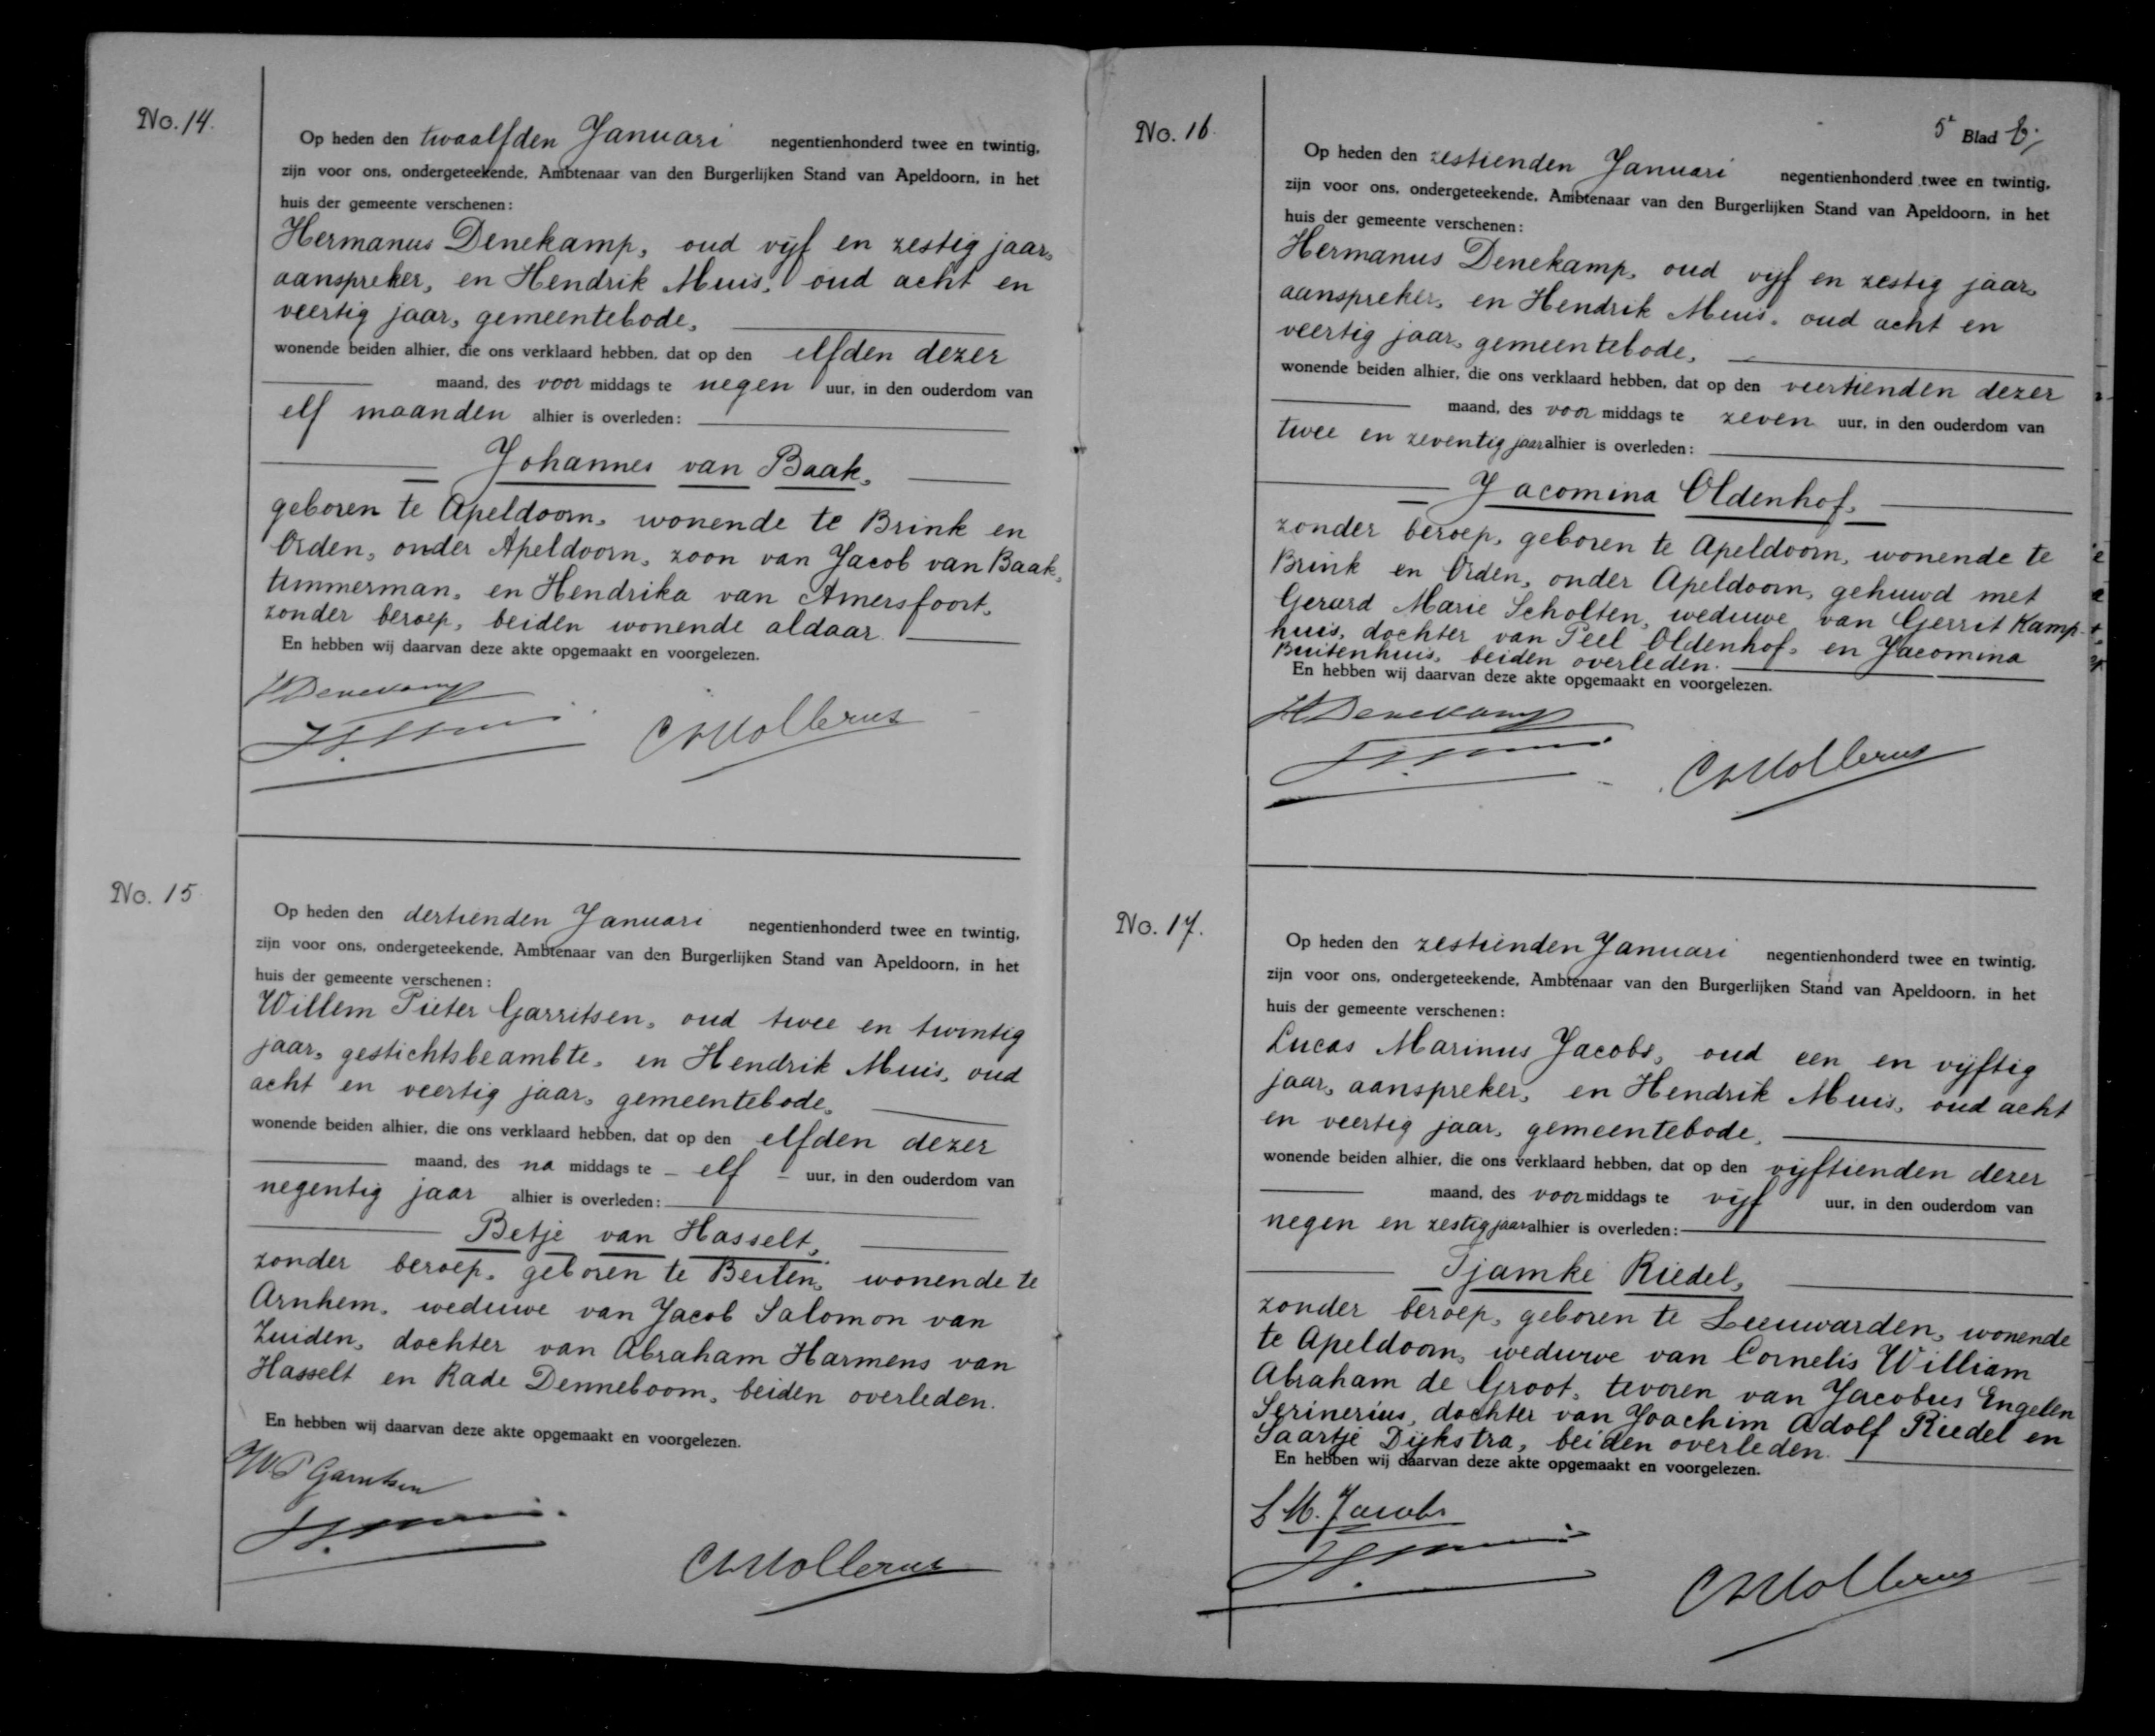 No. 14.
Op heden den twaalfden Januari negentienhonderd twee en twintig,
zijn voor ons, ondergeteekende, Ambtenaar van den Burgerlijken Stand van Apeldoorn, in het
huis der gemeente verschenen:
Hermanus Denekamp, oud vijf en zestig jaar,
aanspreker, en Hendrik Muis, oud acht en
veertig jaar, gemeentebode,
wonende beiden alhier, die ons verklaard hebben, dat op den elfden dezer
maand, des voor middags te negen uur, in den ouderdom van
elf maanden alhier is overleden:
Johannes van Baak,
geboren te Apeldoorn, wonende te Brink en
Orden, onder Apeldoorn, zoon van Jacob van Baak,
timmerman, en Hendrika van Amersfoort,
zonder beroep, beiden wonende aldaar.
En hebben wij daarvan deze akte opgemaakt en voorgelezen.
HDenekamp
H. Muis
CMollerus
No. 15
Op heden den dertienden Januari negentienhonderd twee en twintig,
zijn voor ons, ondergeteekende, Ambtenaar van den Burgerlijken Stand van Apeldoorn, in het
huis der gemeente verschenen:
Willem Pieter Garritsen, oud twee en twintig
jaar, gestichtsbeambte, en Hendrik Muis, oud
acht en veertig jaar, gemeentebode,
wonende beiden alhier, die ons verklaard hebben, dat op den elfden dezer
maand, des na middags te elf uur, in den ouderdom van
negentig jaar alhier is overleden:
Betje van Hasselt,
zonder beroep, geboren te Beilen, wonende te
Arnhem, weduwe van Jacob Salomon van
Zuiden, dochter van Abraham Harmens van
Hasselt en Rade Denneboom, beiden overleden.
En hebben wij daarvan deze akte opgemaakt en voorgelezen.
WP Garritsen
H. Muis
CMollerus
No. 16
5e Blad
Op heden den zestienden Januari negentienhonderd twee en twintig,
zijn voor ons, ondergeteekende, Ambtenaar van den Burgerlijken Stand van Apeldoorn, in het
huis der gemeente verschenen:
Hermanus Denekamp, oud vijf en zestig jaar,
aanspreker, en Hendrik Muis, oud acht en
veertig jaar, gemeentebode,
wonende beiden alhier, die ons verklaard hebben, dat op den veertienden dezer
maand, des voor middags te zeven uur, in den ouderdom van
twee en zeventig jaar alhier is overleden:
Jacomina Oldenhof,
zonder beroep, geboren te Apeldoorn, wonende te
Brink en Orden, onder Apeldoorn, gehuwd met
Gerard Marie Scholten, weduwe van Gerrit Kamp-
huis, dochter van Peel Oldenhof, en Jacomina
Buitenhuis, beiden overleden.
En hebben wij daarvan deze akte opgemaakt en voorgelezen.
HDenekamp
H. Muis
CMollerus
No. 17.
Op heden den zestienden Januari negentienhonderd twee en twintig,
zijn voor ons, ondergeteekende, Ambtenaar van den Burgerlijken Stand van Apeldoorn, in het
huis der gemeente verschenen:
Lucas Marinus Jacobs, oud een en vijftig
jaar, aanspreker, en Hendrik Muis, oud acht
en veertig jaar, gemeentebode,
wonende beiden alhier, die ons verklaard hebben, dat op den vijftienden dezer
maand, des voor middags te vijf uur, in den ouderdom van
negen en zestig jaar alhier is overleden:
Tjamke Riedel,
zonder beroep, geboren te Leeuwarden, wonende
te Apeldoorn, weduwe van Cornelis William
Abraham de Groot, tevoren van Jacobus Engelen
Serinerius, dochter van Joachim Adolf Riedel en
Saartje Dijkstra, beiden overleden.
En hebben wij daarvan deze akte opgemaakt en voorgelezen.
L M. Jacobs
H. Muis
CMollerus